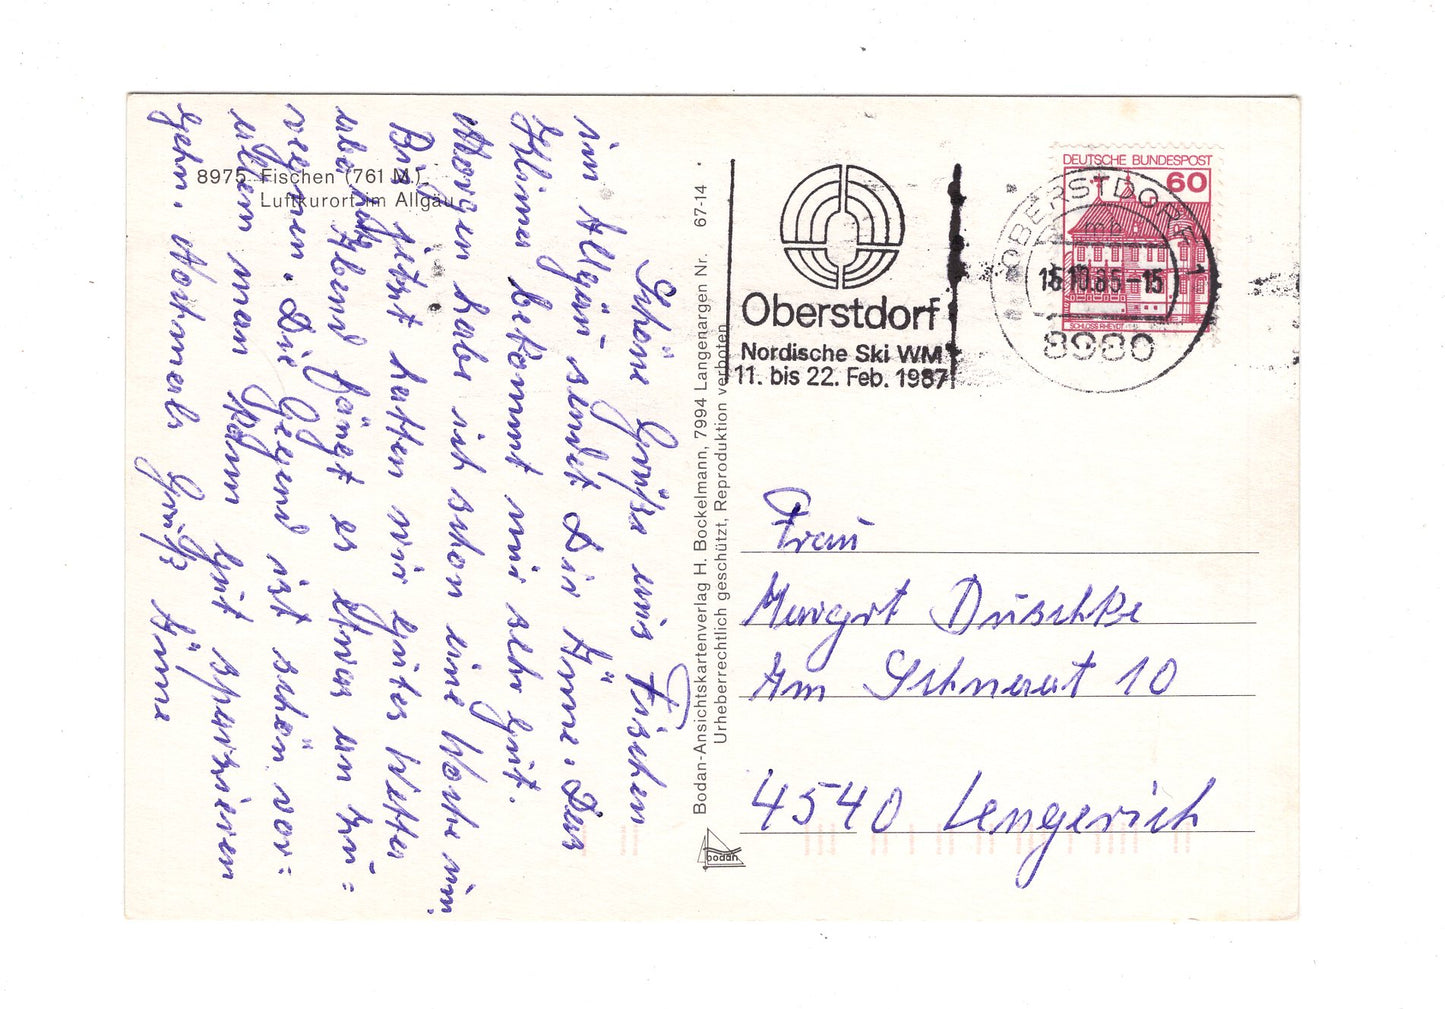 8975 Fischen (761 M.)
Luftkurort im Allgäu
Schöne Grüße aus Fischen
im Allgäu sendet Dir Änne. Das
Klima bekommt mir sehr gut.
Morgen habe ich schon eine Woche um.
Bis jetzt hatten wir gutes Wetter
aber heute Abend fängt es etwas an zu
regnen. Die Gegend ist schön vor=
allem man kann gut spazieren
gehn. Nochmals Gruß Änne
Bodan-Ansichtskartenverlag H. Bockelmann, 7994 Langenargen Nr. 67-14
Urheberrechtlich geschützt, Reproduktion verboten
bodan
Oberstdorf
Nordische Ski WM
11. bis 22. Feb. 1987
DEUTSCHE BUNDESPOST
60
SCHLOSS RHEYDT
OBERSTDORF 1
16.10.85-15
8980
Frau
Margrt Duschke
Am Schnaat 10
4540 Lengerich